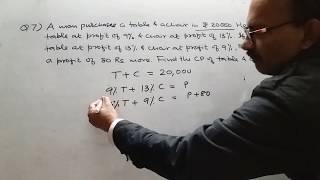 Q7) A man purchases a table & a chair in ₹ 20000. He
table at profit of 9% & chair at profit of 13%. If
table at profit of 13% & chair at profit of 9%,
a profit of 80 Rs more. Find the CP of table &
T + C = 20,000
9% T + 13% C = P
% T + 9% C = P+80